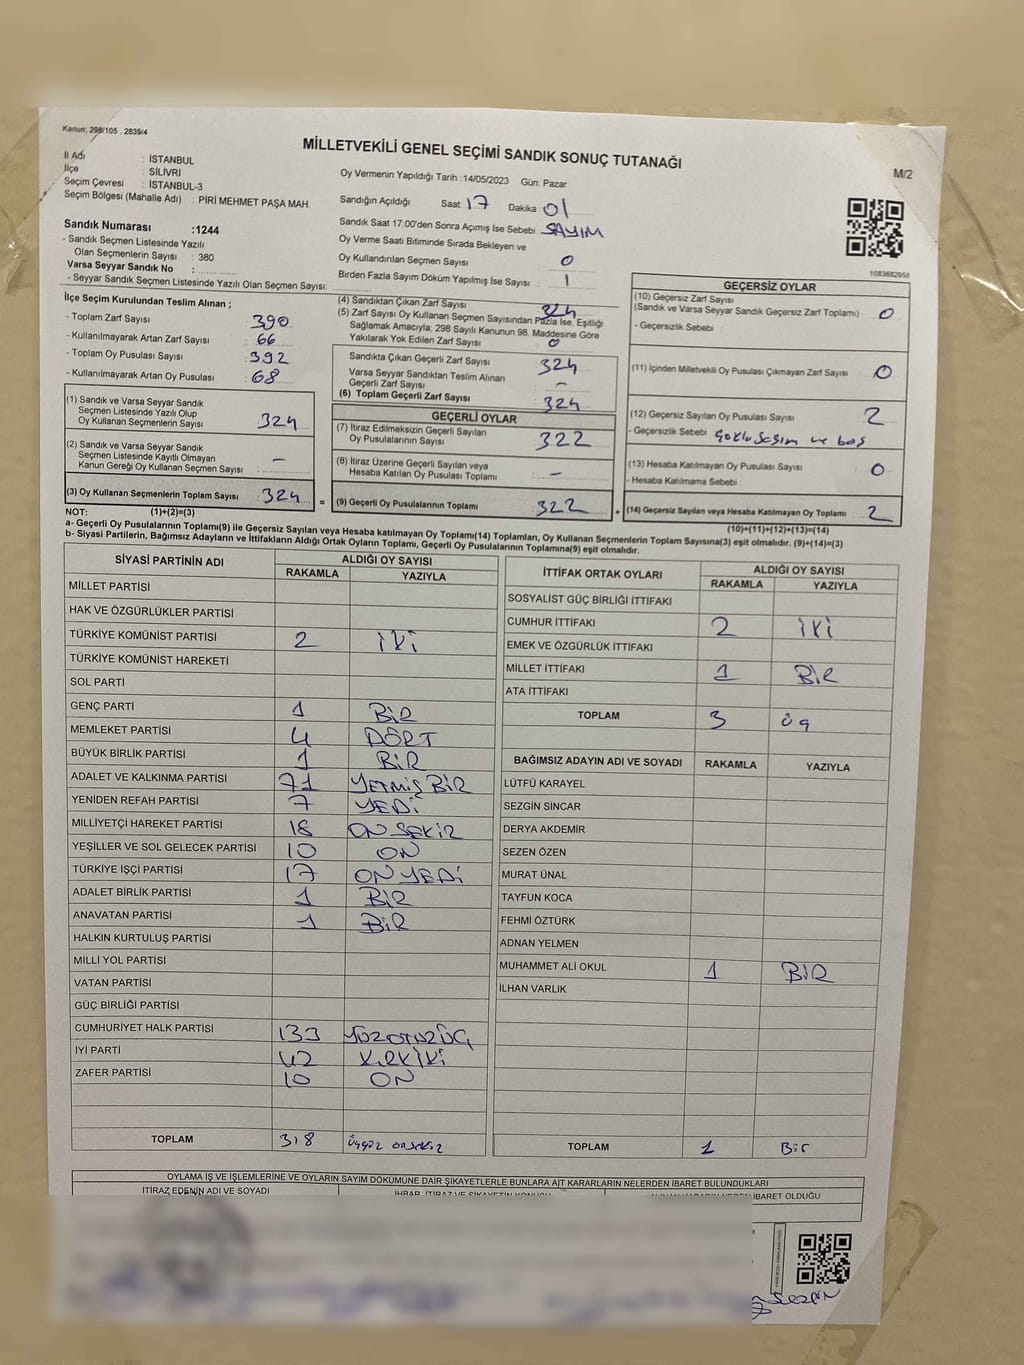 Kanun: 298/105 , 2839/4
MİLLETVEKİLİ GENEL SEÇİMİ SANDIK SONUÇ TUTANAĞI
M/2
İl Adı : İSTANBUL
İlçe : SİLİVRİ
Seçim Çevresi : İSTANBUL-3
Seçim Bölgesi (Mahalle Adı) : PİRİ MEHMET PAŞA MAH.
Oy Vermenin Yapıldığı Tarih :14/05/2023 Gün: Pazar
Sandığın Açıldığı Saat: 17 Dakika 01
Sandık Saat 17:00'den Sonra Açımış İse Sebebi SAYIM
Oy Verme Saati Bitiminde Sırada Bekleyen ve
Oy Kullandırılan Seçmen Sayısı 0
Birden Fazla Sayım Döküm Yapılmış İse Sayısı : 1
Sandık Numarası :1244
- Sandık Seçmen Listesinde Yazılı
Olan Seçmenlerin Sayısı : 380
Varsa Seyyar Sandık No :
- Seyyar Sandık Seçmen Listesinde Yazılı Olan Seçmen Sayısı:
1083682956
İlçe Seçim Kurulundan Teslim Alınan ;
- Toplam Zarf Sayısı 390
- Kullanılmayarak Artan Zarf Sayısı : 66
- Toplam Oy Pusulası Sayısı : 392
- Kullanılmayarak Artan Oy Pusulası : 68
(1) Sandık ve Varsa Seyyar Sandık
Seçmen Listesinde Yazılı Olup
Oy Kullanan Seçmenlerin Sayısı : 324
(2) Sandık ve Varsa Seyyar Sandık
Seçmen Listesinde Kayıtlı Olmayan
Kanun Gereği Oy Kullanan Seçmen Sayısı : –
(3) Oy Kullanan Seçmenlerin Toplam Sayısı : 324
(4) Sandıktan Çıkan Zarf Sayısı 324
(5) Zarf Sayısı Oy Kullanan Seçmen Sayısından Fazla İse, Eşitliği
Sağlamak Amacıyla; 298 Sayılı Kanunun 98. Maddesine Göre
Yakılarak Yok Edilen Zarf Sayısı : 0
Sandıkta Çıkan Geçerli Zarf Sayısı : 324
Varsa Seyyar Sandıktan Teslim Alınan
Geçerli Zarf Sayısı : –
(6) Toplam Geçerli Zarf Sayısı : 324
GEÇERLİ OYLAR
(7) İtiraz Edilmeksizin Geçerli Sayılan
Oy Pusulalarının Sayısı : 322
(8) İtiraz Üzerine Geçerli Sayılan veya
Hesaba Katılan Oy Pusulası Toplamı : –
= (9) Geçerli Oy Pusulalarının Toplamı : 322
GEÇERSİZ OYLAR
(10) Geçersiz Zarf Sayısı
(Sandık ve Varsa Seyyar Sandık Geçersiz Zarf Toplamı) : 0
- Geçersizlik Sebebi :
(11) İçinden Milletvekili Oy Pusulası Çıkmayan Zarf Sayısı : 0
(12) Geçersiz Sayılan Oy Pusulası Sayısı : 2
- Geçersizlik Sebebi : Çoklu Seçim ve boş
(13) Hesaba Katılmayan Oy Pusulası Sayısı : 0
- Hesaba Katılmama Sebebi :
+ (14) Geçersiz Sayılan veya Hesaba Katılmayan Oy Toplamı : 2
NOT: (1)+(2)=(3) (10)+(11)+(12)+(13)=(14)
a- Geçerli Oy Pusulalarının Toplamı(9) ile Geçersiz Sayılan veya Hesaba katılmayan Oy Toplamı(14) Toplamları, Oy Kullanan Seçmenlerin Toplam Sayısına(3) eşit olmalıdır. (9)+(14)=(3)
b- Siyasi Partilerin, Bağımsız Adayların ve İttifakların Aldığı Ortak Oyların Toplamı, Geçerli Oy Pusulalarının Toplamına(9) eşit olmalıdır.
SİYASİ PARTİNİN ADI ALDIĞI OY SAYISI
RAKAMLA YAZIYLA
MİLLET PARTİSİ
HAK VE ÖZGÜRLÜKLER PARTİSİ
TÜRKİYE KOMÜNİST PARTİSİ 2 İKİ
TÜRKİYE KOMÜNİST HAREKETİ
SOL PARTİ
GENÇ PARTİ 1 BİR
MEMLEKET PARTİSİ 4 DÖRT
BÜYÜK BİRLİK PARTİSİ 1 BİR
ADALET VE KALKINMA PARTİSİ 71 YETMİŞ BİR
YENİDEN REFAH PARTİSİ 7 YEDİ
MİLLİYETÇİ HAREKET PARTİSİ 18 ON SEKİZ
YEŞİLLER VE SOL GELECEK PARTİSİ 10 ON
TÜRKİYE İŞÇİ PARTİSİ 17 ON YEDİ
ADALET BİRLİK PARTİSİ 1 BİR
ANAVATAN PARTİSİ 1 BİR
HALKIN KURTULUŞ PARTİSİ
MİLLİ YOL PARTİSİ
VATAN PARTİSİ
GÜÇ BİRLİĞİ PARTİSİ
CUMHURİYET HALK PARTİSİ 133 YÜZOTUZÜÇ
İYİ PARTİ 42 KIRKİKİ
ZAFER PARTİSİ 10 ON
TOPLAM 318 üçyüz onsekiz
İTTİFAK ORTAK OYLARI ALDIĞI OY SAYISI
RAKAMLA YAZIYLA
SOSYALİST GÜÇ BİRLİĞİ İTTİFAKI
CUMHUR İTTİFAKI 2 İKİ
EMEK VE ÖZGÜRLÜK İTTİFAKI
MİLLET İTTİFAKI 1 BİR
ATA İTTİFAKI
TOPLAM 3 üç
BAĞIMSIZ ADAYIN ADI VE SOYADI RAKAMLA YAZIYLA
LÜTFÜ KARAYEL
SEZGİN SİNCAR
DERYA AKDEMİR
SEZEN ÖZEN
MURAT ÜNAL
TAYFUN KOCA
FEHMİ ÖZTÜRK
ADNAN YELMEN
MUHAMMET ALİ OKUL 1 BİR
İLHAN VARLIK
TOPLAM 1 Bir
OYLAMA İŞ VE İŞLEMLERİNE VE OYLARIN SAYIM DÖKÜMÜNE DAİR ŞİKAYETLERLE BUNLARA AİT KARARLARIN NELERDEN İBARET BULUNDUKLARI
İTİRAZ EDENİN ADI VE SOYADI